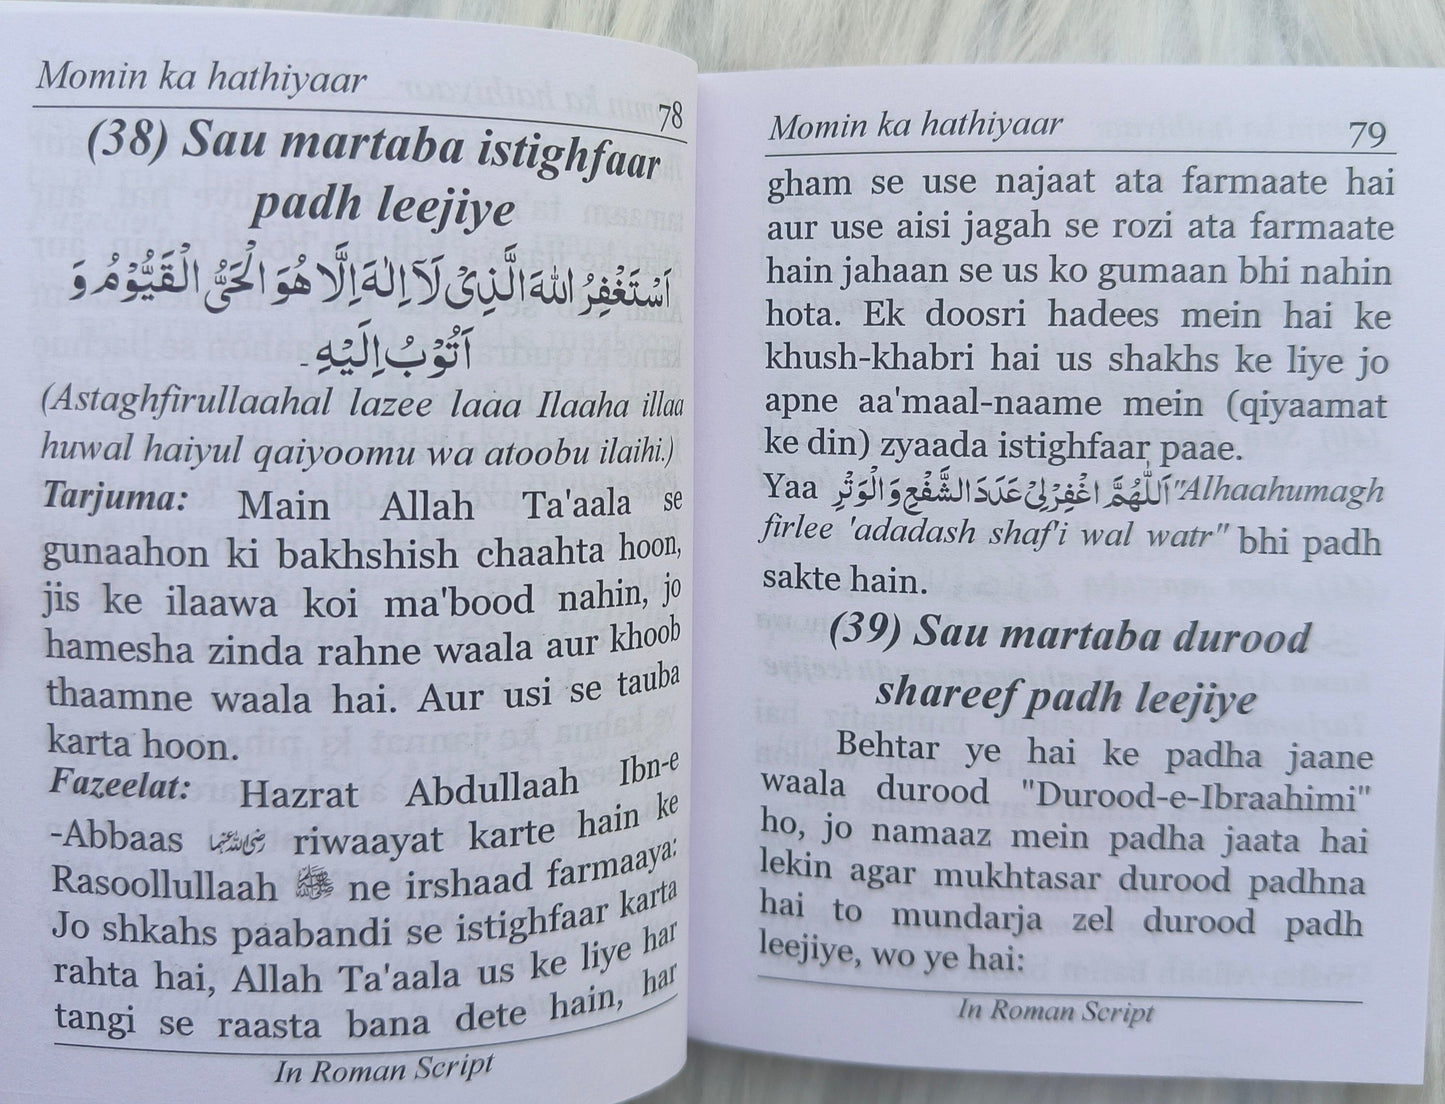 Momin ka hathiyaar
78
(38) Sau martaba istighfaar
padh leejiye
اَسْتَغْفِرُ اللهَ الَّذِىْ لَآ اِلٰهَ اِلَّا هُوَ الْحَىُّ الْقَيُّوْمُ وَ
اَتُوْبُ اِلَيْهِ۔
(Astaghfirullaahal lazee laaa Ilaaha illaa
huwal haiyul qaiyoomu wa atoobu ilaihi.)
Tarjuma: Main Allah Ta'aala se
gunaahon ki bakhshish chaahta hoon,
jis ke ilaawa koi ma'bood nahin, jo
hamesha zinda rahne waala aur khoob
thaamne waala hai. Aur usi se tauba
karta hoon.
Fazeelat: Hazrat Abdullaah Ibn-e
-Abbaas رضی اللہ عنہما riwaayat karte hain ke
Rasoollullaah ﷺ ne irshaad farmaaya:
Jo shkahs paabandi se istighfaar karta
rahta hai, Allah Ta'aala us ke liye har
tangi se raasta bana dete hain, har
In Roman Script
Momin ka hathiyaar
79
gham se use najaat ata farmaate hai
aur use aisi jagah se rozi ata farmaate
hain jahaan se us ko gumaan bhi nahin
hota. Ek doosri hadees mein hai ke
khush-khabri hai us shakhs ke liye jo
apne aa'maal-naame mein (qiyaamat
ke din) zyaada istighfaar paae.
Yaa اَللّٰهُمَّ اغْفِرْلِىْ عَدَدَ الشَّفْعِ وَ الْوَتْرِ "Alhaahumagh
firlee 'adadash shaf'i wal watr" bhi padh
sakte hain.
(39) Sau martaba durood
shareef padh leejiye
Behtar ye hai ke padha jaane
waala durood "Durood-e-Ibraahimi"
ho, jo namaaz mein padha jaata hai
lekin agar mukhtasar durood padhna
hai to mundarja zel durood padh
leejiye, wo ye hai:
In Roman Script